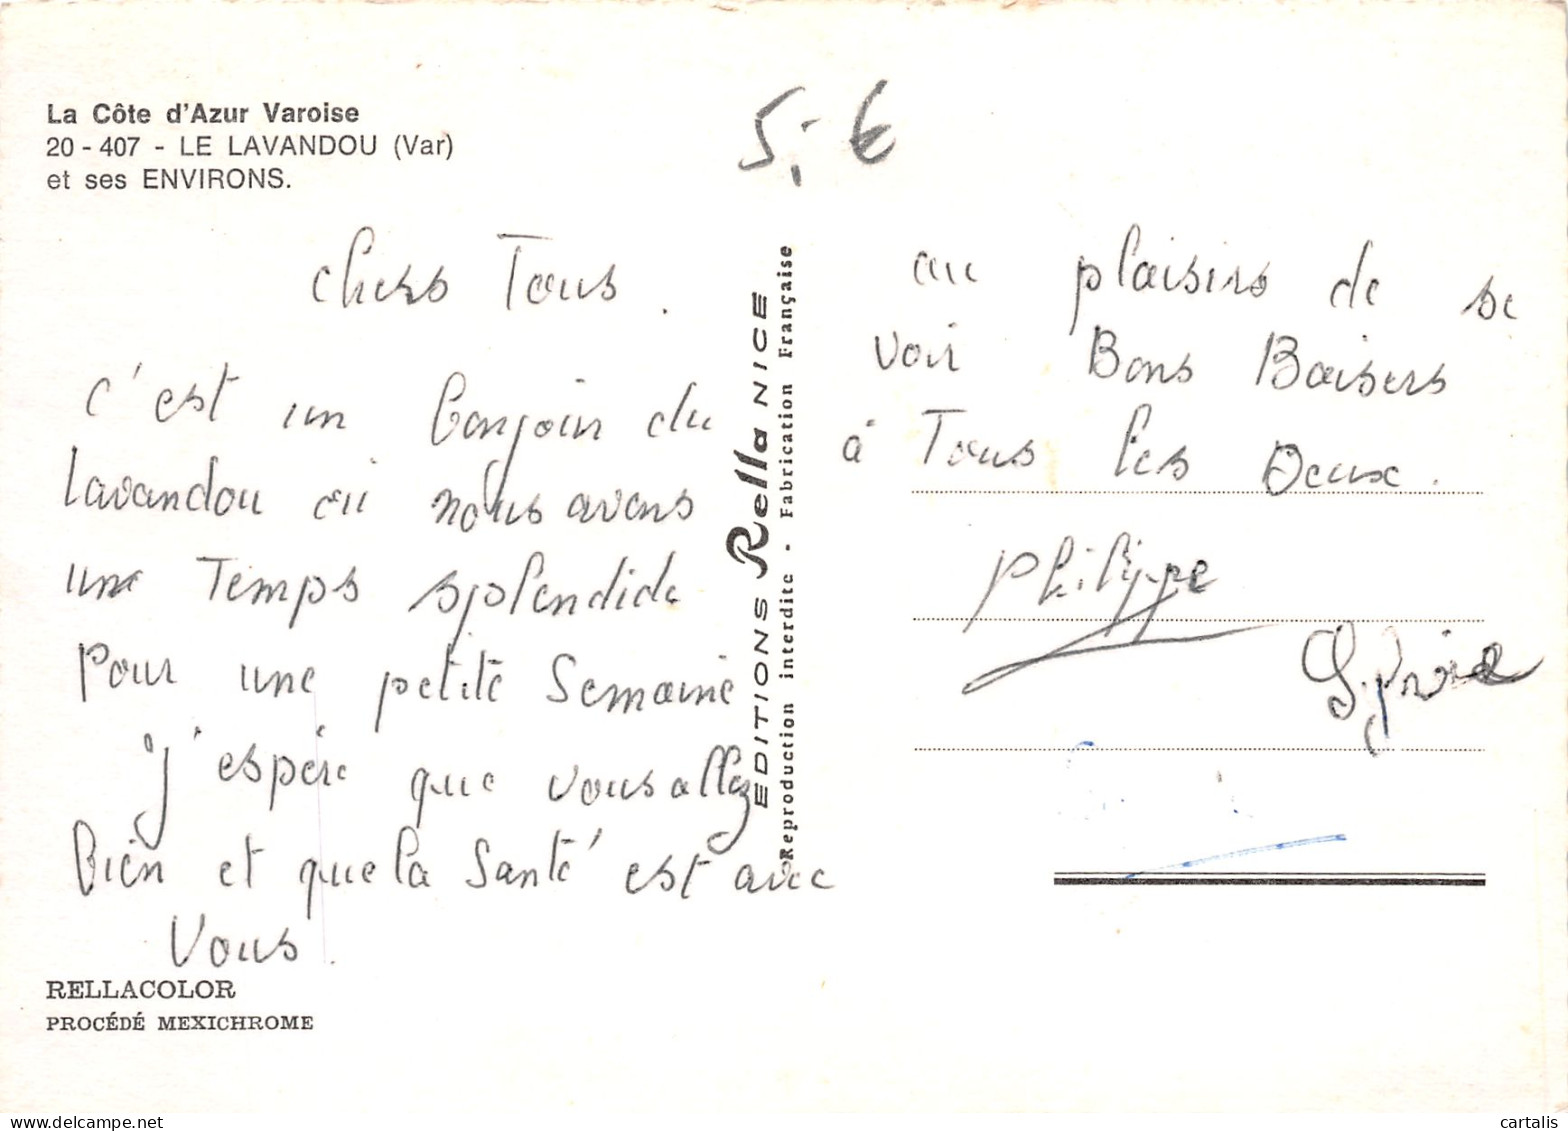 La Côte d'Azur Varoise
20 - 407 - LE LAVANDOU (Var)
et ses ENVIRONS.
5,- €
Chers Tous.
C'est un bonjour du
Lavandou où nous avons
une Temps splendide
Pour une petite Semaine
J'espère que vous allez
Bien et que la Santé est avec
Vous.
RELLACOLOR
PROCÉDÉ MEXICHROME
EDITIONS Rella NICE
Reproduction interdite - Fabrication Française
au plaisirs de se
voir Bons Baisers
à Tous les Deux.
Philippe
cartalis